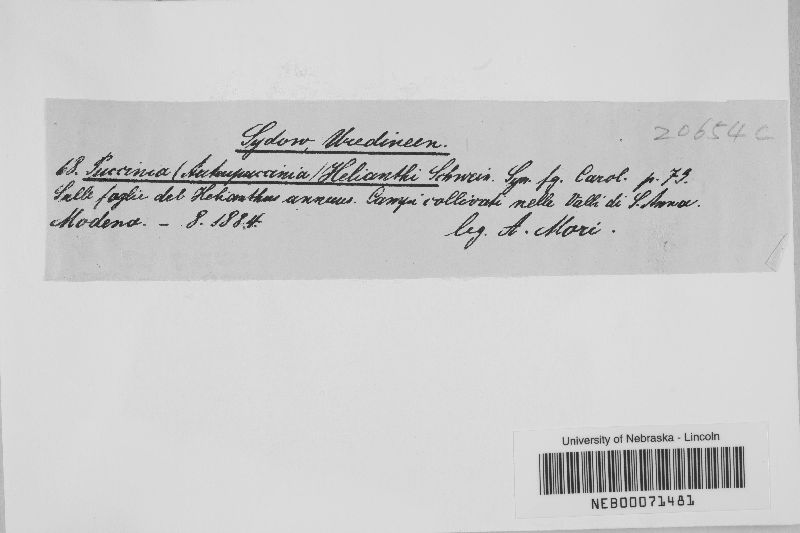 Sydow, Uredineen.
20654 C
68. Puccinia (Auteupuccinia) Helianthi Schwein. Syn. fg. Carol. p. 73.
Sulle foglie del Helianthus annuus. Campi collivati nelle Valli di S. Anna.
Modena. - 8. 1884.
leg. A. Mori.
University of Nebraska - Lincoln
NEB00071481